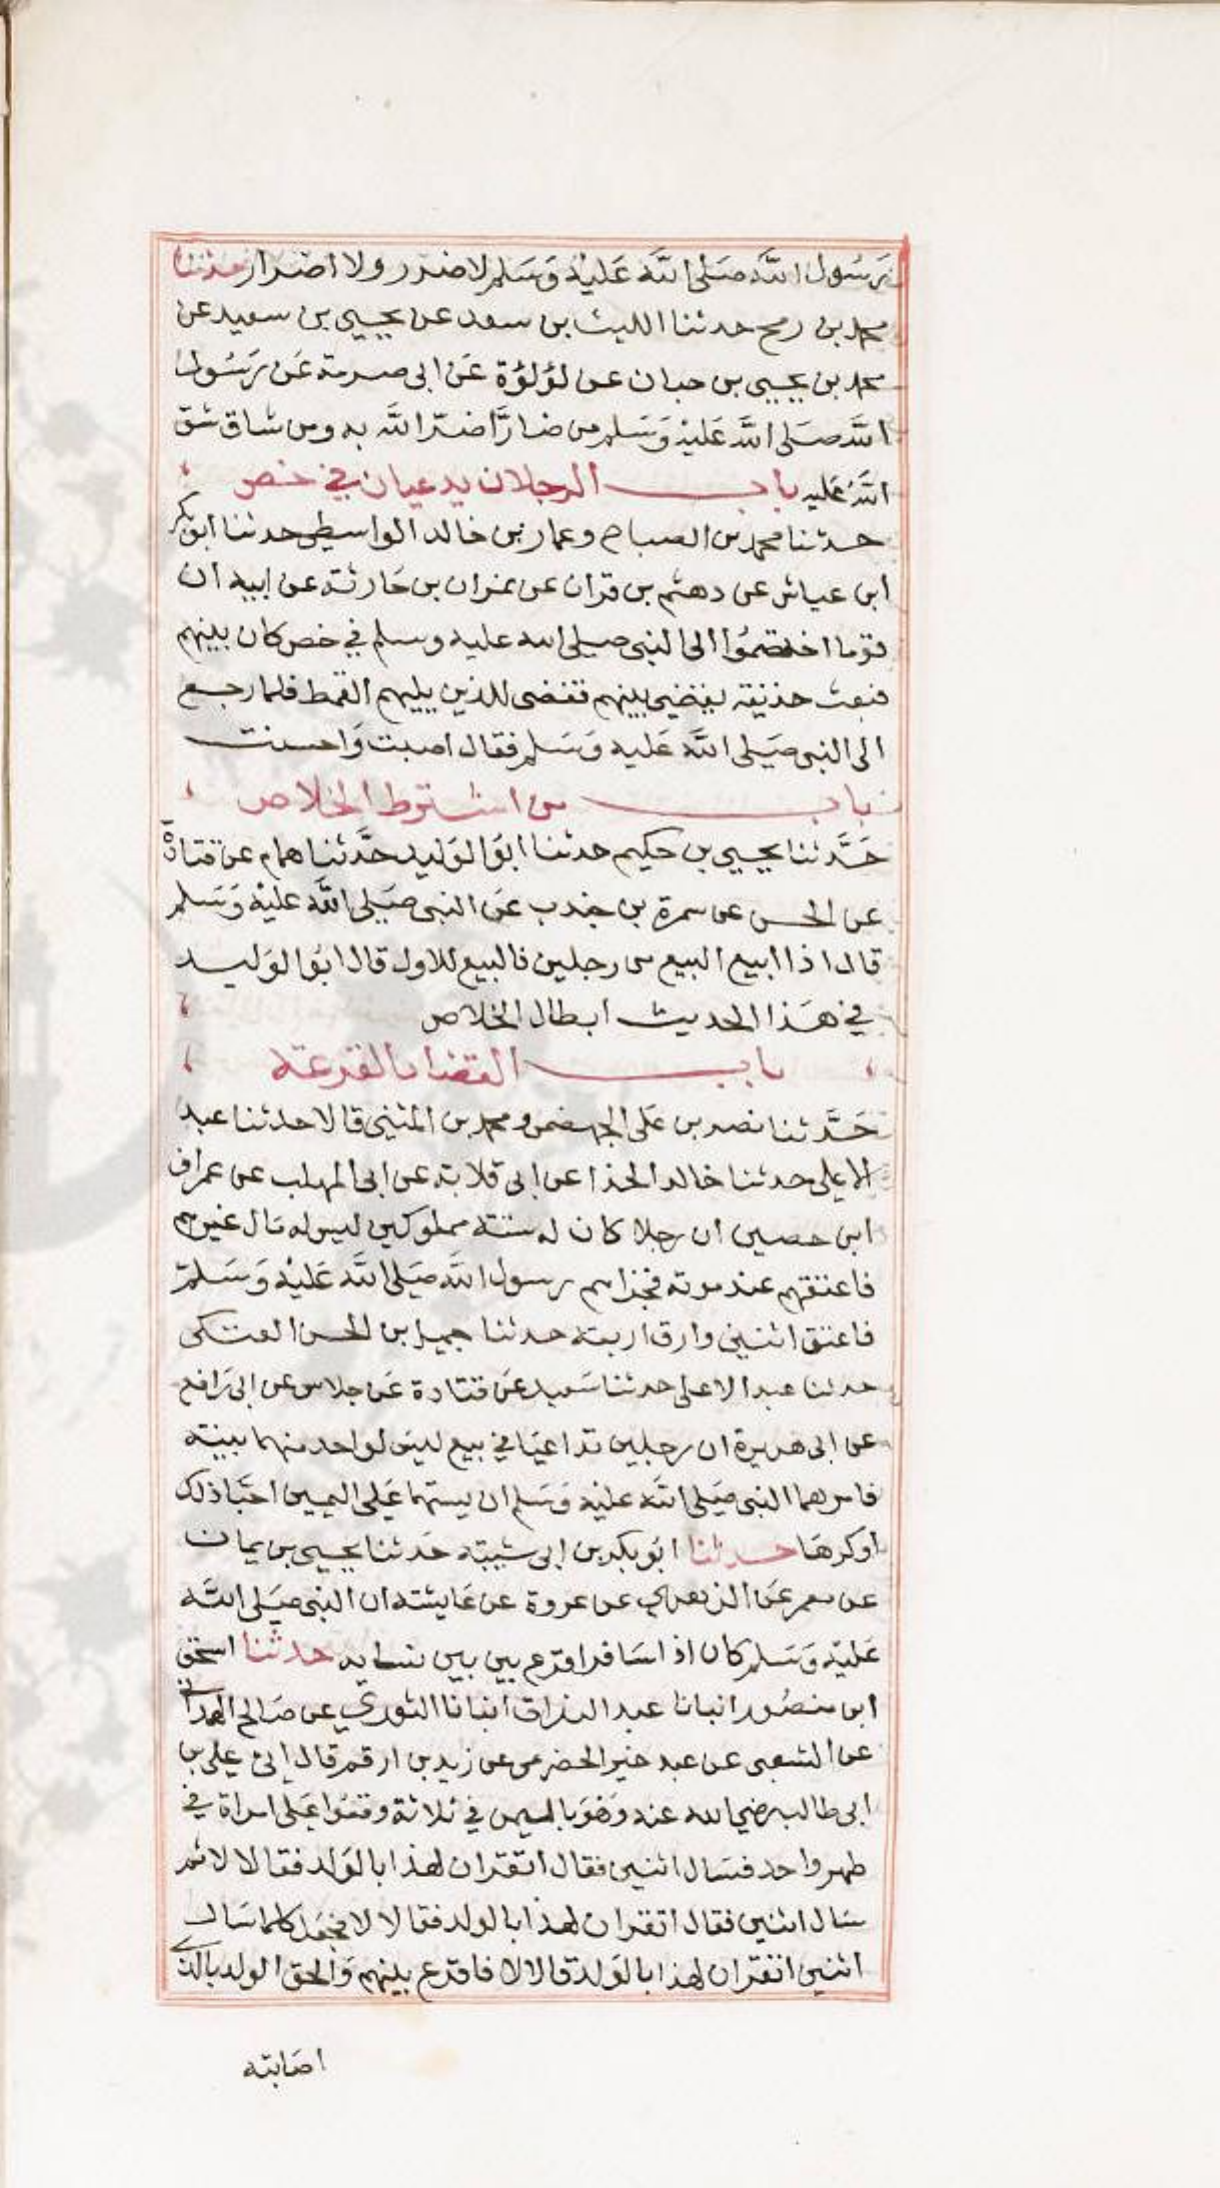 رسول الله صلى الله عليه وسلم لا ضرر ولا اضرار حدثنا
محمد بن رمح حدثنا الليث بن سعد عن يحيى بن سعيد عن
محمد بن يحيى بن حبان عن لؤلؤة عن ابى صرمة عن رسول
الله صلى الله عليه وسلم من ضارَّ اضر الله به ومن شاق شق
الله عليه باب الرجلان يدعيان في خص
حدثنا محمد بن الصباح وعمار بن خالد الواسطى حدثنا ابو بكر
ابن عياش عن دهثم بن قران عن نمران بن جارية عن ابيه ان
قوما اختصموا الى النبى صلى الله عليه وسلم في خص كان بينهم
فبعث حذيفة يقضى بينهم فقضى للذين يليهم القمط فلما رجع
الى النبى صلى الله عليه وسلم فقال اصبت واحسنت
باب من اشترط الخلاص
حدَّثنا يحيى بن حكيم حدثنا ابو الوليد حدَّثنا همام عن قتادة
عن الحسن عن سمرة بن جندب عن النبى صلى الله عليه وسلم
قال اذا ابيع البيع من رجلين فالبيع للاول قال ابو الوليد
في هذا الحديث ابطال الخلاص
باب القضا بالقرعة
حدَّثنا نصر بن على الجهضمى ومحمد بن المثنى قالا حدثنا عبد
الاعلى حدثنا خالد الحذا عن ابى قلابة عن ابى المهلب عن عمران
ابن حصين ان رجلا كان له ستة مملوكين ليس له مال غيرهم
فاعتقهم عند موته فجزاهم رسول الله صلى الله عليه وسلم
فاعتق اثنين وارق اربعة حدثنا جميل بن الحسن العتكى
حدثنا عبد الاعلى حدثنا سعيد عن قتادة عن خلاس عن ابى رافع
عن ابى هريرة ان رجلين تداعيا في بيع ليس لواحد منهما بينة
فامرهما النبى صلى الله عليه وسلم ان يستهما على اليمين احبا ذلك
او كرها حدثنا ابو بكر بن ابى شيبة حدثنا يحيى بن يمان
عن معمر عن الزهري عن عروة عن عايشة ان النبى صلى الله
عليه وسلم كان اذا سافر اقرع بين بين نسايه حدثنا اسحق
ابن منصور انبانا عبد الرزاق انبانا الثوري عن صالح الهمدانى
عن الشعبى عن عبد خير الحضرمى عن زيد بن ارقم قال اتى على بن
ابى طالب رضي الله عنه وهو باليمن في ثلاثة وقعوا على امراة في
طهر واحد فسال اثنين فقال اتقران لهذا بالولد فقالا لا ثم
سال اثنين فقال اتقران لهذا بالولد فقالا لا فجعل كلما سال
اثنين اتقران لهذا بالولد قالا لا فاقرع بينهم والحق الولد بالذى
اصابته